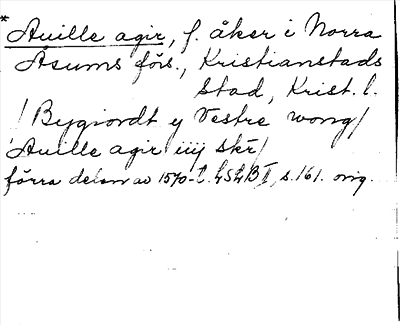 * Auille agir, f. åker i Norra
Åsumsförs., Kristianstads
stad, Krist. l.
/Bygiordt y Vestre wong/
/Auille agir iiij skr/
förra delen av 1570-t. LSLB II, s. 161. orig.